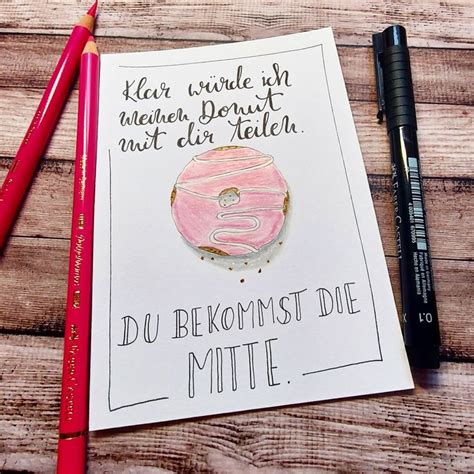 Klar würde ich
meinen Donut
mit dir teilen.
DU BEKOMMST DIE
MITTE.
FABER-CASTELL
0.1